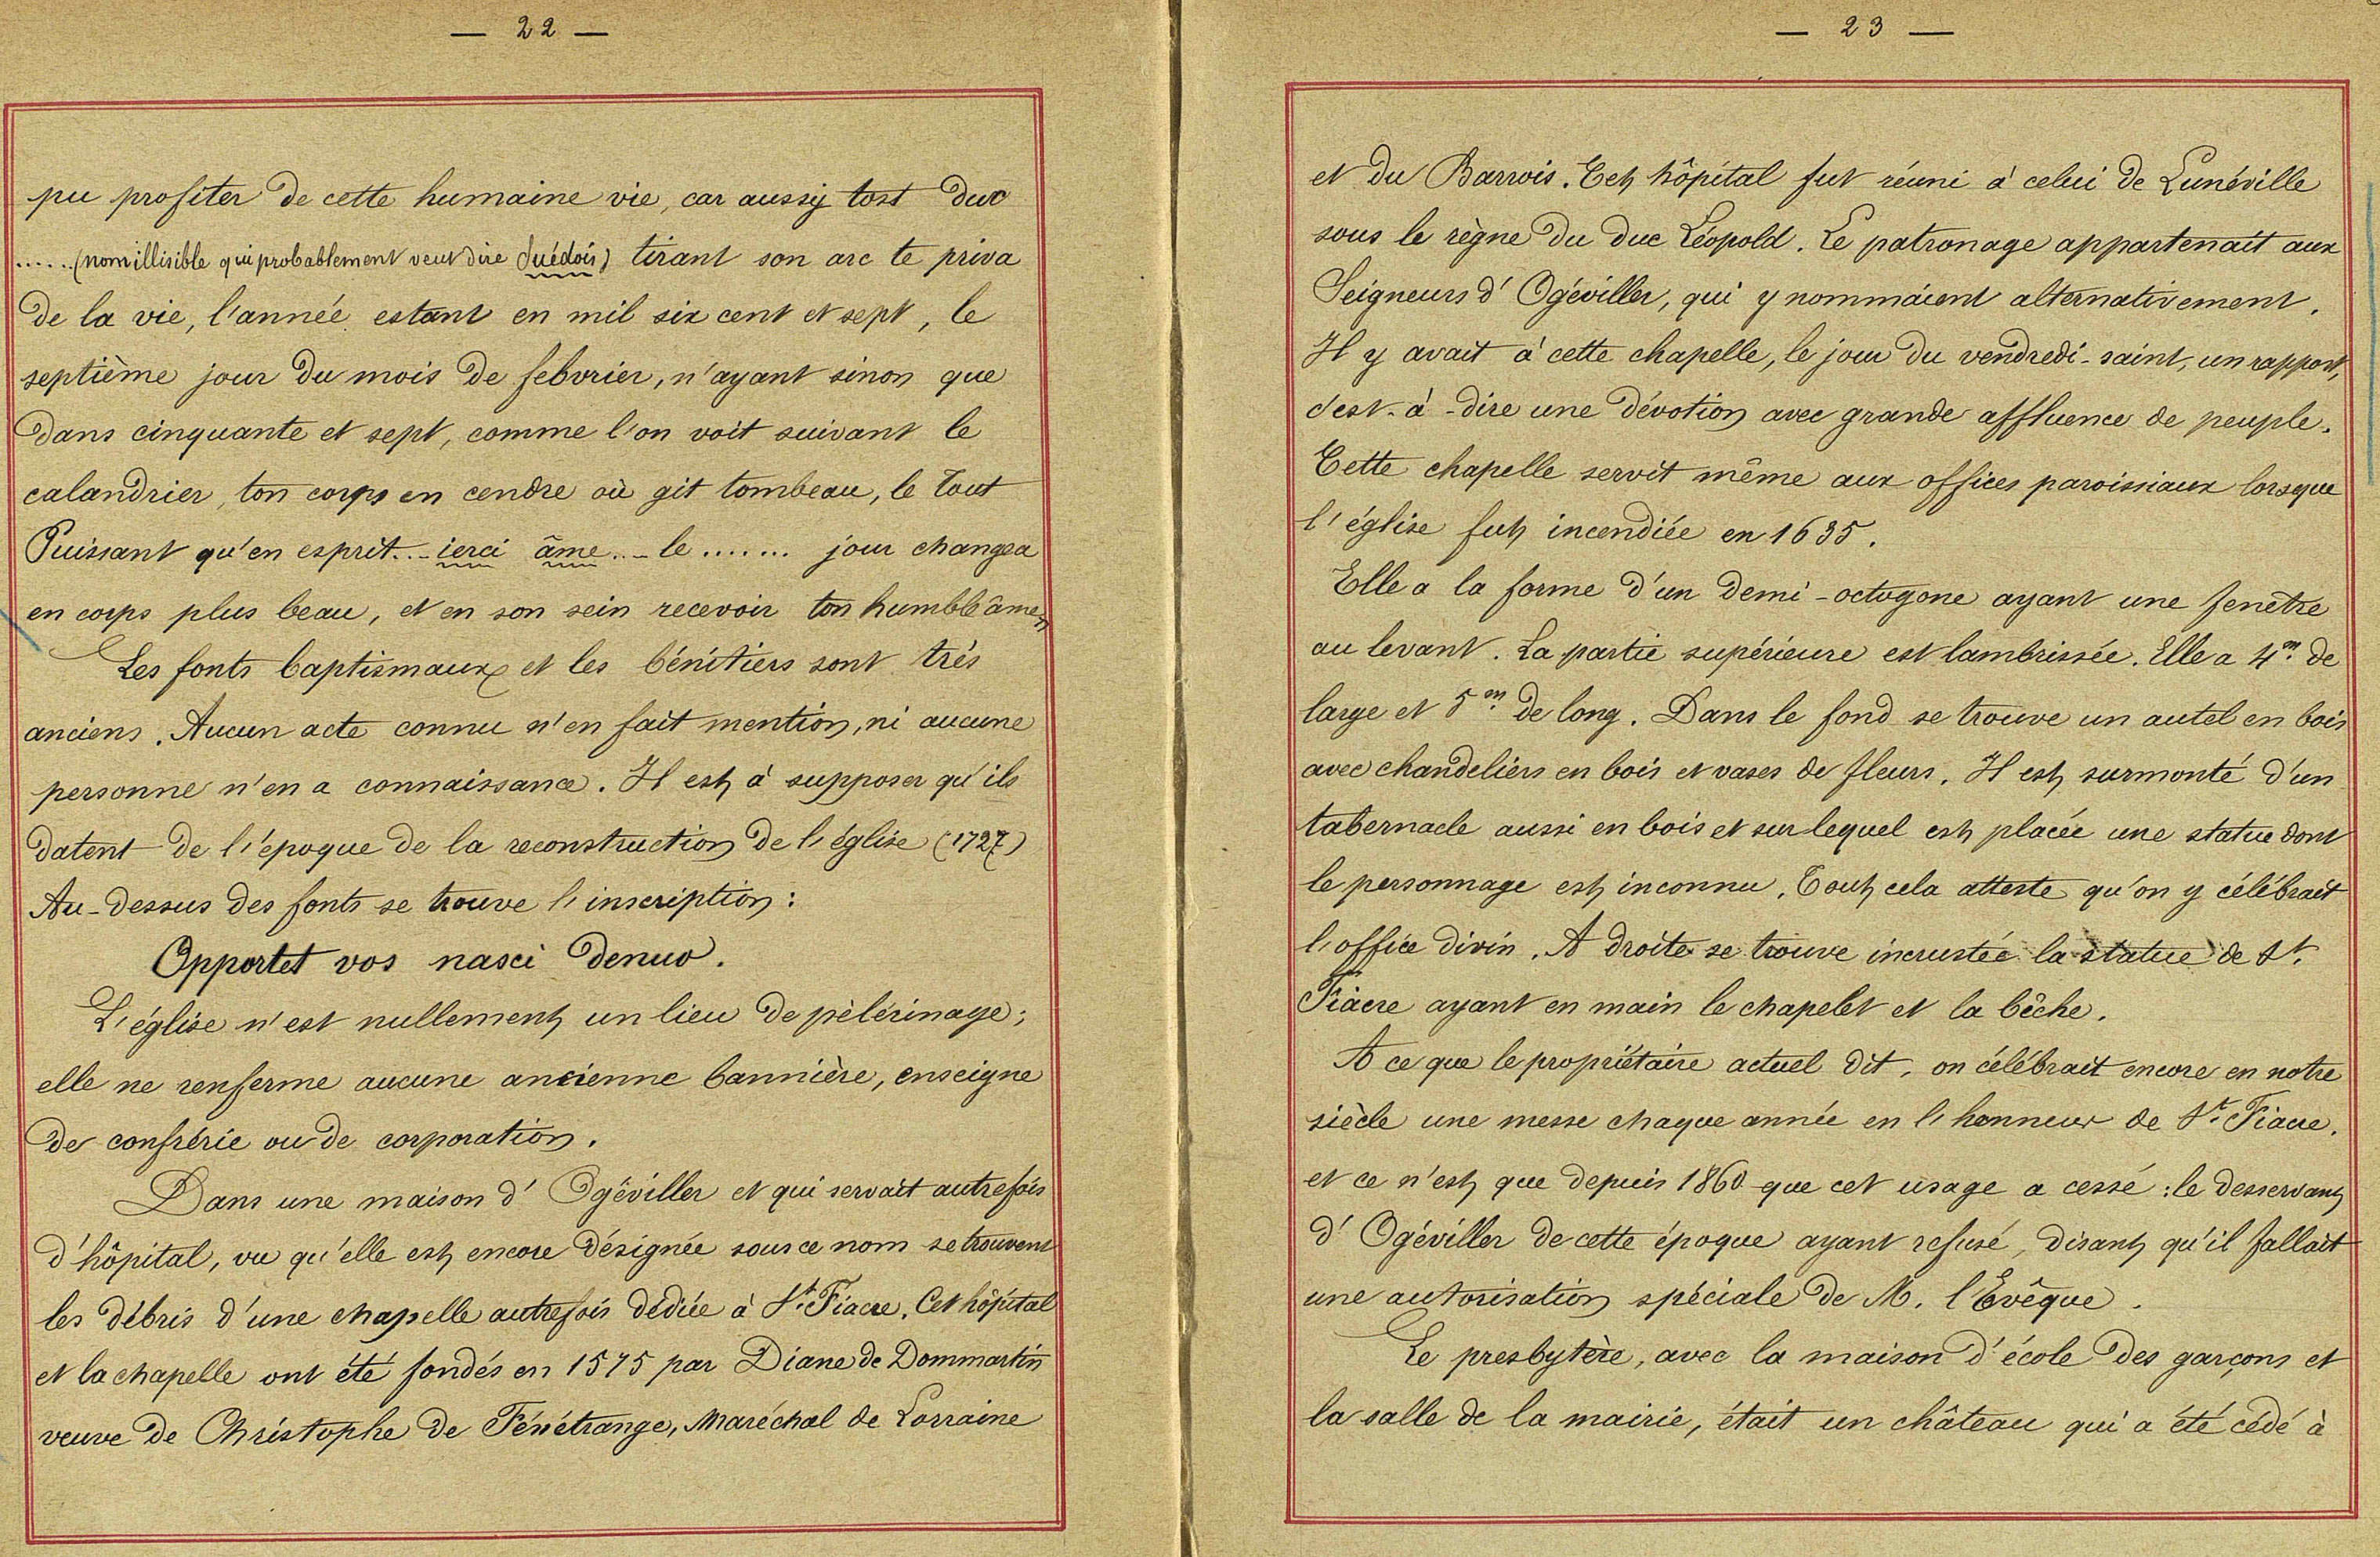 — 22 —
pu profiter de cette humaine vie, car aussy tost duc
......(nom illisible qui probablement veut dire Suédois) tirant son arc te priva
de la vie, l'année estant en mil six cent et sept, le
septième jour du mois de febvrier, n'ayant sinon que
dans cinquante et sept, comme l'on voit suivant le
calandrier, ton corps en cendre où git tombeau, le Tout
Puissant qu'en esprit... ierci âme... le ....... jour changea
en corps plus beau, et en son sein recevoir ton humble âme"
Les fonts baptismaux et les bénitiers sont très
anciens. Aucun acte connu n'en fait mention, ni aucune
personne n'en a connaissance. Il est à supposer qu'ils
datent de l'époque de la reconstruction de l'église (1727)
Au-dessus des fonts se trouve l'inscription :
Opportet vos nasci denuo.
L'église n'est nullement un lieu de pèlérinage ;
elle ne renferme aucune ancienne bannière, enseigne
de confrérie ou de corporation.
Dans une maison d'Ogéviller et qui servait autrefois
d'hôpital, vu qu'elle est encore désignée sous ce nom se trouvent
les débris d'une chapelle autrefois dédiée à St. Fiacre. Cet hôpital
et la chapelle ont été fondés en 1575 par Diane de Dommartin
veuve de Christophe de Fénétrange, Maréchal de Lorraine
— 23 —
et du Barrois. Cet hôpital fut réuni à celui de Lunéville
sous le règne du duc Léopold. Le patronage appartenait aux
Seigneurs d'Ogéviller, qui y nommaient alternativement.
Il y avait à cette chapelle, le jour du vendredi-saint, un rapport,
c'est-à-dire une dévotion avec grande affluence de peuple.
Cette chapelle servit même aux offices paroissiaux lorsque
l'église fut incendiée en 1635.
Elle a la forme d'un demi-octogone ayant une fenêtre
au levant. La partie supérieure est lambrissée. Elle a 4m. de
large et 5m. de long. Dans le fond se trouve un autel en bois
avec chandeliers en bois et vases de fleurs. Il est surmonté d'un
tabernacle aussi en bois et sur lequel est placée une statue dont
le personnage est inconnu. Tout cela atteste qu'on y célébrait
l'office divin. A droite se trouve incrustée la statue de St.
Fiacre ayant en main le chapelet et la bêche.
A ce que le propriétaire actuel dit, on célébrait encore en notre
siècle une messe chaque année en l'honneur de St. Fiacre.
et ce n'est que depuis 1860 que cet usage a cessé : le desservant
d'Ogéviller de cette époque ayant refusé, disant qu'il fallait
une autorisation spéciale de M. l'Evêque.
Le presbytère, avec la maison d'école des garçons et
la salle de la mairie, était un château qui a été cédé à